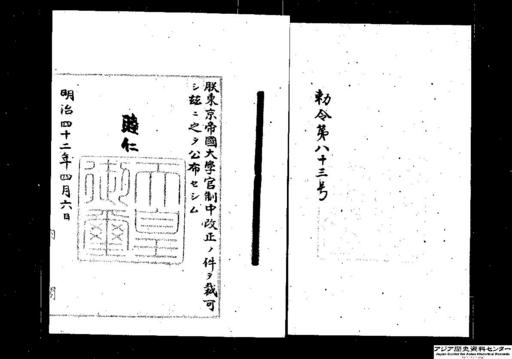 勅令第八十三号
朕東京帝國大學官制中改正ノ件ヲ裁可
シ茲ニ之ヲ公布セシム
睦仁
天皇御璽
明治四十二年四月六日
内閣
アジア歴史資料センター
Japan Center for Asian Historical Records